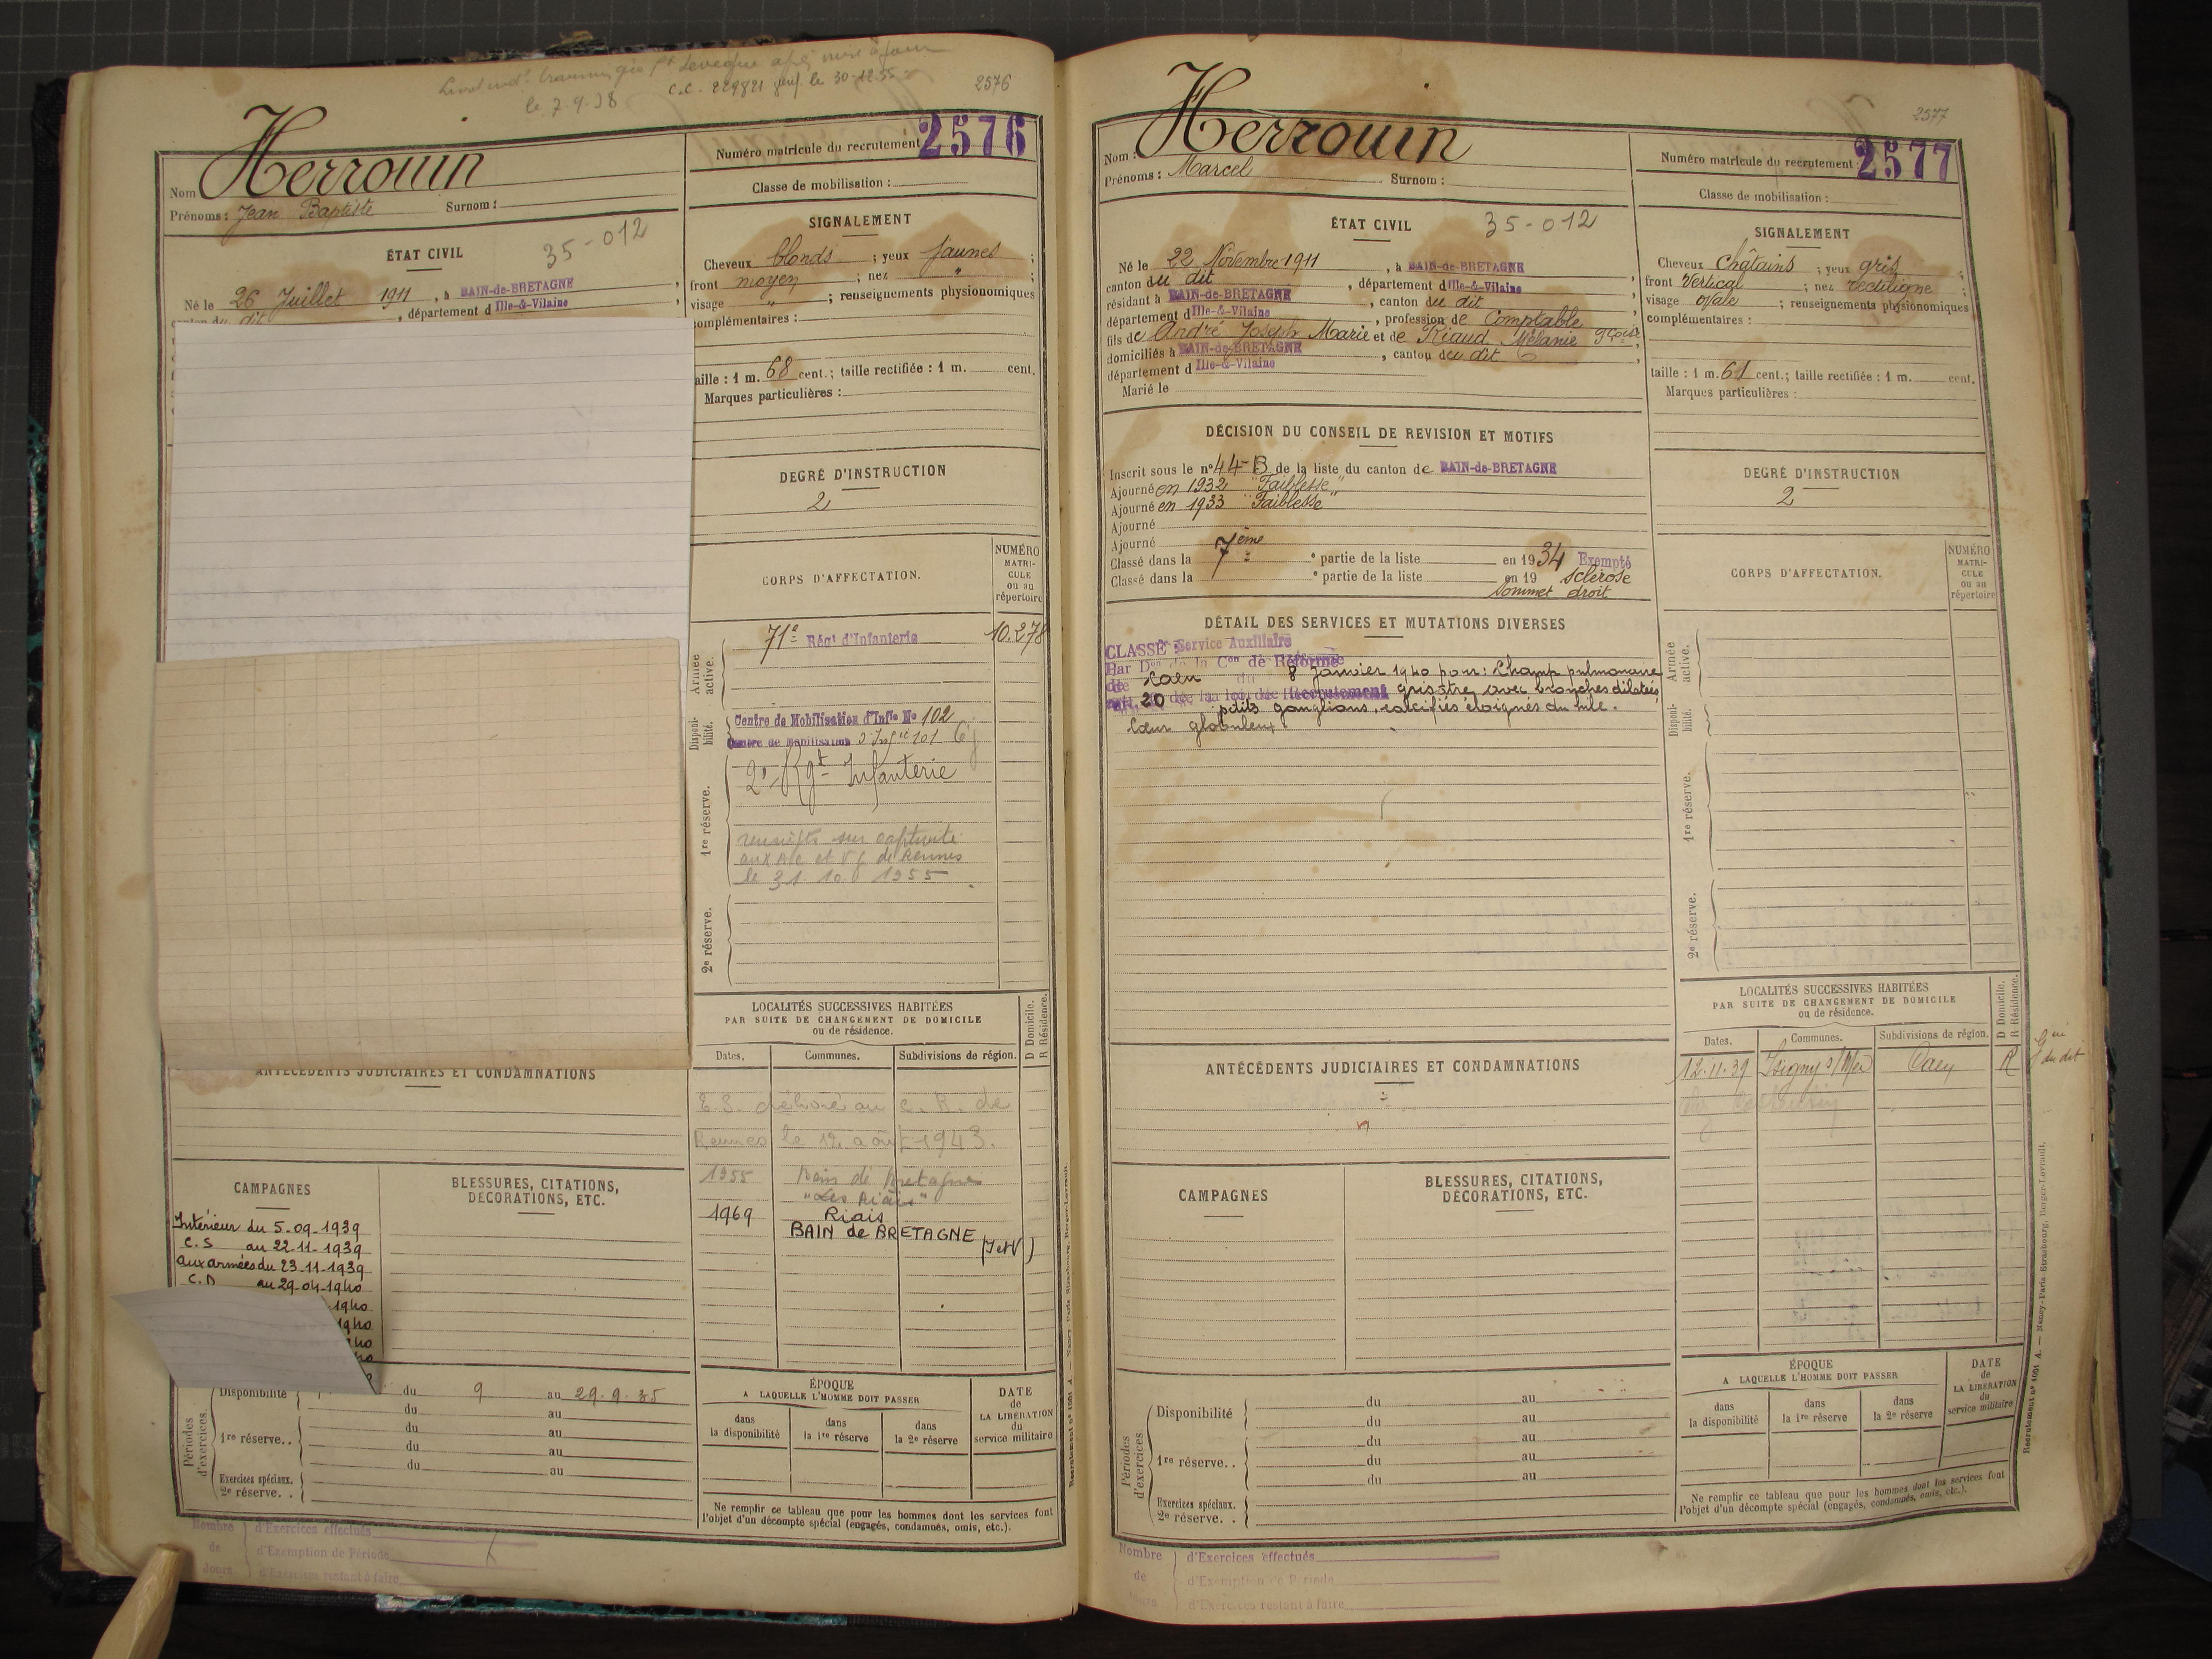 le 7-9-38
C.C. 229821 le 30-12-55
2576
Nom Herrouin
Prénoms : Jean Baptiste Surnom :
Numéro matricule du recrutement 2576
Classe de mobilisation :
ÉTAT CIVIL
35-012
Né le 26 Juillet 1911, à BAIN-de-BRETAGNE,
canton du dit, département d Ille-&-Vilaine
SIGNALEMENT
Cheveux blonds ; yeux jaunes ;
front moyen ; nez " ;
visage " ; renseignements physionomiques
complémentaires :
taille : 1 m. 68 cent. ; taille rectifiée : 1 m. cent.
Marques particulières :
DEGRÉ D'INSTRUCTION
2
CORPS D'AFFECTATION.
NUMÉRO
MATRI-
CULE
ou au
répertoire
Armée active.
71e Régt d'Infanterie 10.278
Disponibilité.
Centre de Mobilisation d'Infie No 102
Centre de Mobilisation d'Infie 101
1re réserve.
2e Rgt Infanterie
sur captivité
aux et de Rennes
le 31 10 1955
2e réserve.
LOCALITÉS SUCCESSIVES HABITÉES
PAR SUITE DE CHANGEMENT DE DOMICILE
ou de résidence.
D Domicile.
R Résidence.
Dates. Communes. Subdivisions de région.
au C. R. de
Rennes le 12 août 1943.
1955 Bain de Bretagne
"Les Riais"
1969 Riais
BAIN de BRETAGNE (I et V)
ANTÉCÉDENTS JUDICIAIRES ET CONDAMNATIONS
CAMPAGNES
BLESSURES, CITATIONS,
DÉCORATIONS, ETC.
Intérieur du 5-09-1939
C.S au 22-11-1939
aux armées du 23-11-1939
au 29-04-1940
-1940
1940
Périodes d'exercices.
Disponibilité du 9 au 29.9.35
du au
1re réserve.. du au
du au
du au
Exercices spéciaux.
2e réserve. .
ÉPOQUE
A LAQUELLE L'HOMME DOIT PASSER
dans la disponibilité
dans la 1re réserve
dans la 2e réserve
DATE
de
LA LIBÉRATION
du
service militaire
Ne remplir ce tableau que pour les hommes dont les services font
l'objet d'un décompte spécial (engagés, condamnés, omis, etc.).
Nombre de Jours
d'Exercices effectués
d'Exemption de Période
d'Exercices restant à faire
2577
Nom : Herrouin
Prénoms : Marcel Surnom :
Numéro matricule du recrutement 2577
Classe de mobilisation :
ÉTAT CIVIL
35-012
Né le 22 Novembre 1911, à BAIN-de-BRETAGNE,
canton du dit, département d Ille-&-Vilaine,
résidant à BAIN-de-BRETAGNE, canton du dit
département d Ille-&-Vilaine, profession de Comptable
fils de André Joseph Marie et de Riaud Mélanie Fçoise,
domiciliés à BAIN-de-BRETAGNE, canton du dit,
département d Ille-&-Vilaine
Marié le
SIGNALEMENT
Cheveux Châtains ; yeux gris ;
front Vertical ; nez rectiligne ;
visage ovale ; renseignements physionomiques
complémentaires :
taille : 1 m. 61 cent. ; taille rectifiée : 1 m. cent.
Marques particulières :
DÉCISION DU CONSEIL DE REVISION ET MOTIFS
Inscrit sous le no 44-B de la liste du canton de BAIN-de-BRETAGNE
Ajourné en 1932 "Faiblesse"
Ajourné en 1933 "Faiblesse"
Ajourné
Ajourné
Classé dans la 7ème e partie de la liste en 1934 Exempté
Classé dans la e partie de la liste en 19 sclérose
sommet droit
DEGRÉ D'INSTRUCTION
2
DÉTAIL DES SERVICES ET MUTATIONS DIVERSES
CLASSÉ Service Auxiliaire
Par Don de la Con de Réforme
de Caen du 8 Janvier 1940 pour : Champ pulmonaire
art. 20 de la loi de Recrutement grisâtre avec bronches dilatées,
petits ganglions, calcifiés éloignés du hile.
Cœur globuleux
CORPS D'AFFECTATION.
NUMÉRO
MATRI-
CULE
ou au
répertoire
Armée active.
Disponibilité.
1re réserve.
2e réserve.
ANTÉCÉDENTS JUDICIAIRES ET CONDAMNATIONS
LOCALITÉS SUCCESSIVES HABITÉES
PAR SUITE DE CHANGEMENT DE DOMICILE
ou de résidence.
D Domicile.
R Résidence.
Dates. Communes. Subdivisions de région.
12.11.39 Isigny s/Mer Caen R
du dit
CAMPAGNES
BLESSURES, CITATIONS,
DÉCORATIONS, ETC.
Périodes d'exercices.
Disponibilité du au
du au
1re réserve. . du au
du au
du au
Exercices spéciaux.
2e réserve. .
ÉPOQUE
A LAQUELLE L'HOMME DOIT PASSER
dans la disponibilité
dans la 1re réserve
dans la 2e réserve
DATE
de
LA LIBÉRATION
du
service militaire
Ne remplir ce tableau que pour les hommes dont les services font
l'objet d'un décompte spécial (engagés, condamnés, omis, etc.).
Recrutement no 1001 A. — Nancy-Paris-Strasbourg, Berger-Levrault.
Nombre de Jours
d'Exercices effectués
d'Exemption de Période
d'Exercices restant à faire